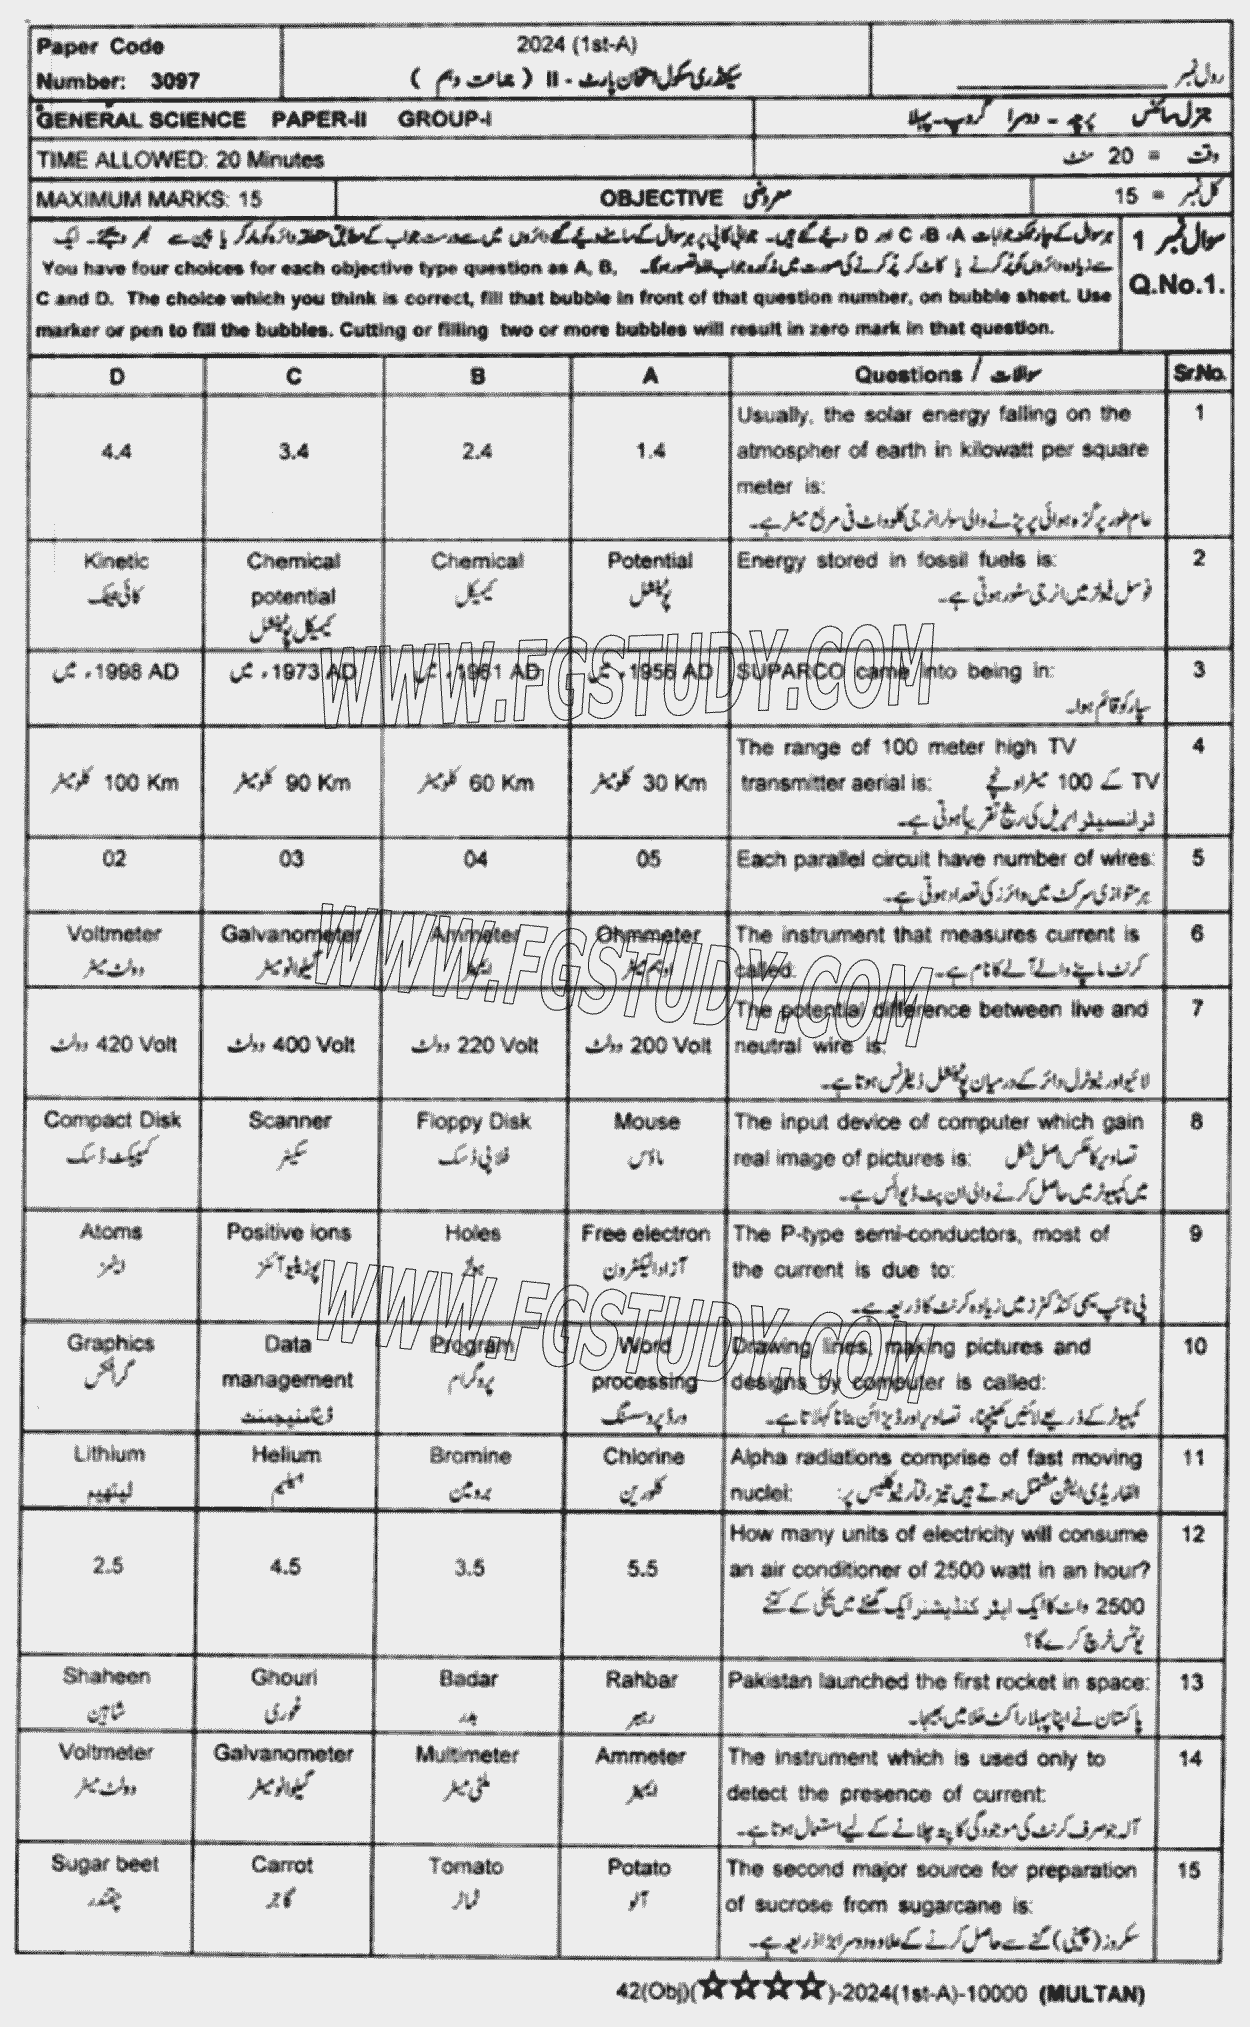 Paper Code
Number: 3097
2024 (1st-A)
سیکنڈری سکول امتحان پارٹ - II ( جماعت دہم )
رول نمبر
GENERAL SCIENCE PAPER-II GROUP-I
جنرل سائنس پرچہ - دوسرا گروپ - پہلا
TIME ALLOWED: 20 Minutes
وقت = 20 منٹ
MAXIMUM MARKS: 15
OBJECTIVE معروضی
کل نمبر = 15
سوال نمبر 1
Q.No.1.
ہر سوال کے چار ممکنہ جوابات A، B، C اور D دیئے گئے ہیں۔ جوابی کاپی پر ہر سوال کے سامنے دیئے گئے دائروں میں سے درست جواب کے مطابق متعلقہ دائرہ کو مارکر یا پین سے بھر دیجئے۔ ایک
سے زیادہ دائروں کو پُر کرنے یا کاٹ کر پُر کرنے کی صورت میں مذکورہ جواب غلط تصور ہوگا۔ You have four choices for each objective type question as A, B,
C and D. The choice which you think is correct, fill that bubble in front of that question number, on bubble sheet. Use
marker or pen to fill the bubbles. Cutting or filling two or more bubbles will result in zero mark in that question.
D C B A Questions / سوالات Sr.No.
Usually, the solar energy falling on the 1
4.4 3.4 2.4 1.4 atmospher of earth in kilowatt per square
meter is:
عام طور پر کرّہ ہوائی پر پڑنے والی سولر انرجی کلو واٹ فی مربع میٹر ہے۔
Kinetic Chemical Chemical Potential Energy stored in fossil fuels is: 2
کائی نیٹک potential کیمیکل پوٹینشل فوسل فیولز میں انرجی سٹور ہوتی ہے۔
کیمیکل پوٹینشل
1998 AD، میں 1973 AD، میں 1961 AD، میں 1956 AD، میں SUPARCO came into being in: 3
سپارکو قائم ہوا۔
The range of 100 meter high TV 4
100 Km کلومیٹر 90 Km کلومیٹر 60 Km کلومیٹر 30 Km کلومیٹر transmitter aerial is: TV کے 100 میٹر اونچے
ٹرانسمیٹر ایریل کی رینج تقریباً ہوتی ہے۔
02 03 04 05 Each parallel circuit have number of wires: 5
ہر متوازی سرکٹ میں وائرز کی تعداد ہوتی ہے۔
Voltmeter Galvanometer Ammeter Ohmmeter The instrument that measures current is 6
وولٹ میٹر گیلوانومیٹر ایمیٹر اوہم میٹر called: کرنٹ ماپنے والے آلے کا نام ہے۔
The potential difference between live and 7
420 Volt وولٹ 400 Volt وولٹ 220 Volt وولٹ 200 Volt وولٹ neutral wire is:
لائیو اور نیوٹرل وائر کے درمیان پوٹینشل ڈیفرنس ہوتا ہے۔
Compact Disk Scanner Floppy Disk Mouse The input device of computer which gain 8
کمپیکٹ ڈسک سکینر فلاپی ڈسک ماؤس real image of pictures is: تصاویر کا عکس اصل شکل
میں کمپیوٹر میں حاصل کرنے والی ان پٹ ڈیوائس ہے۔
Atoms Positive ions Holes Free electron The P-type semi-conductors, most of 9
ایٹمز پوزیٹیو آئنز ہولز آزاد الیکٹرون the current is due to:
پی ٹائپ سیمی کنڈکٹرز میں زیادہ کرنٹ کا ذریعہ ہے۔
Graphics Data Program Word Drawing lines, making pictures and 10
گرافکس management پروگرام processing designs by computer is called:
ڈیٹا مینیجمنٹ ورڈ پروسسنگ کمپیوٹر کے ذریعے لائنیں کھینچنا، تصاویر اور ڈیزائن بنانا کہلاتا ہے۔
Lithium Helium Bromine Chlorine Alpha radiations comprise of fast moving 11
لیتھیم ہیلیم برومین کلورین nuclei: الفا ریڈی ایشن مشتمل ہوتے ہیں تیز رفتار نیوکلیس پر:
How many units of electricity will consume 12
2.5 4.5 3.5 5.5 an air conditioner of 2500 watt in an hour?
2500 واٹ کا ایک ایئر کنڈیشنر ایک گھنٹے میں بجلی کے کتنے
یونٹس خرچ کرے گا؟
Shaheen Ghouri Badar Rahbar Pakistan launched the first rocket in space: 13
شاہین غوری بدر رہبر پاکستان نے اپنا پہلا راکٹ خلا میں بھیجا۔
Voltmeter Galvanometer Multimeter Ammeter The instrument which is used only to 14
وولٹ میٹر گیلوانومیٹر ملٹی میٹر ایمیٹر detect the presence of current:
آلہ جو صرف کرنٹ کی موجودگی کا پتہ چلانے کے لیے استعمال ہوتا ہے۔
Sugar beet Carrot Tomato Potato The second major source for preparation 15
چقندر گاجر ٹماٹر آلو of sucrose from sugarcane is:
سکروز (چینی) گنے سے حاصل کرنے کے علاوہ دوسرا بڑا ذریعہ ہے۔
42(Obj)(☆☆☆☆)-2024(1st-A)-10000 (MULTAN)
WWW.FGSTUDY.COM
WWW.FGSTUDY.COM
WWW.FGSTUDY.COM